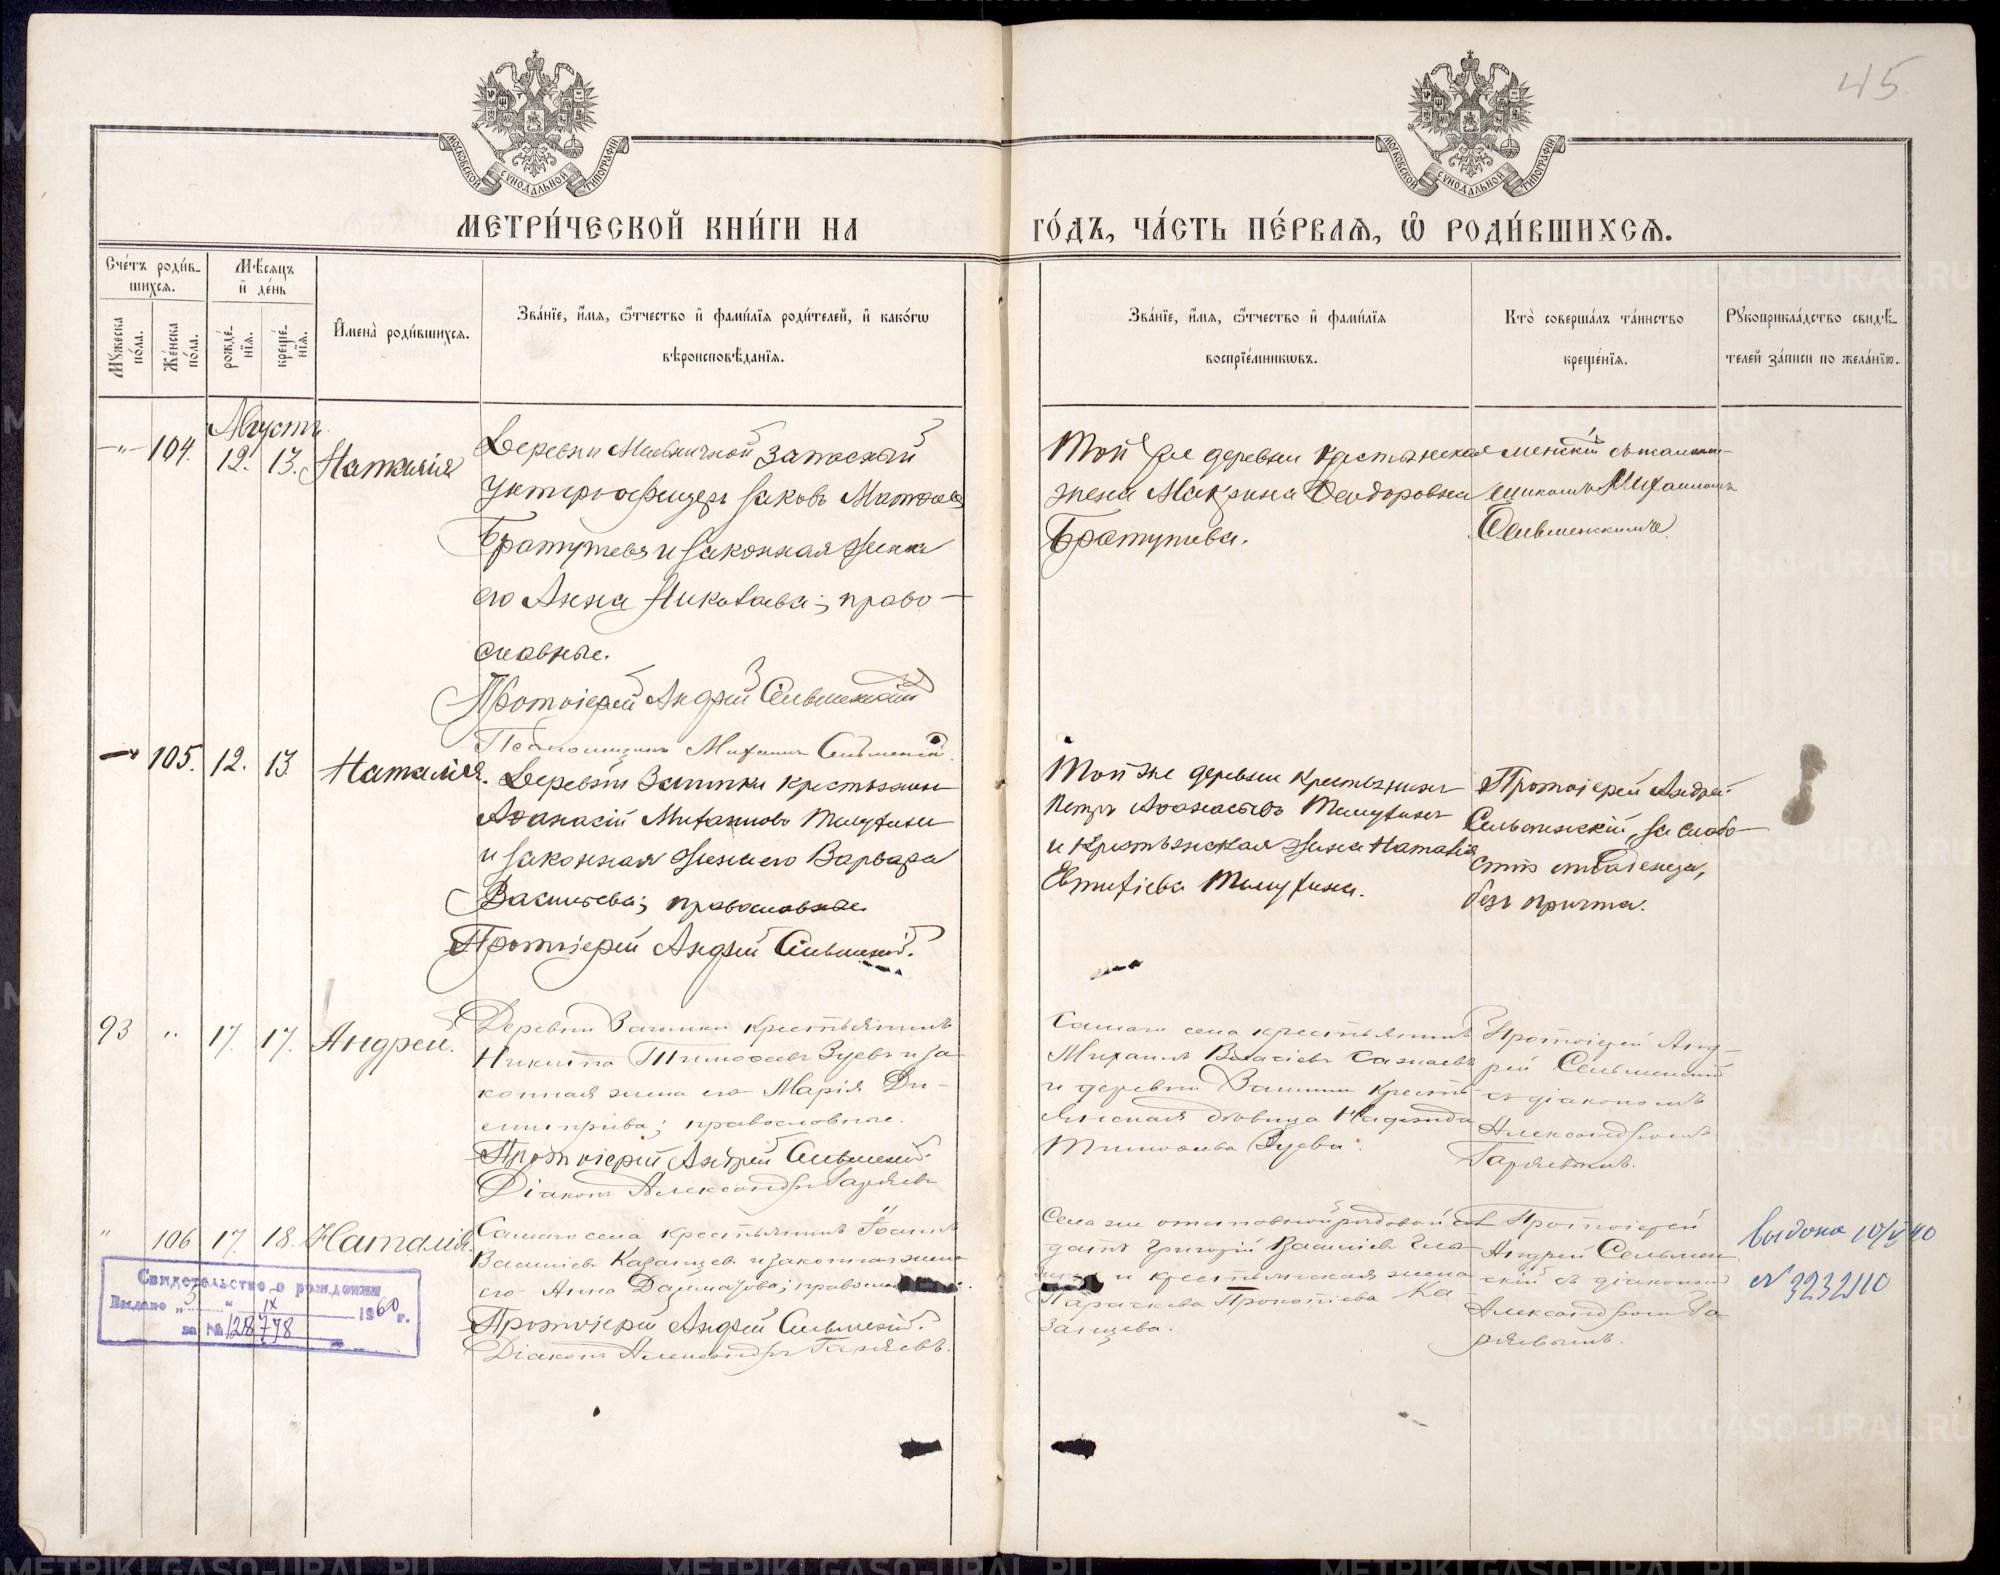 45
МОСКОВСКОЙ СУНОДАЛЬНОЙ ТИПОГРАФІИ
МОСКОВСКОЙ СУНОДАЛЬНОЙ ТИПОГРАФІИ
МЕТРИ́ЧЕСКОЙ КНИ́ГИ НА
ГО́ДЪ, ЧА́СТЬ ПЕ́РВАѦ, Ѽ РОДИ́ВШИХСѦ.
Сче́тъ роди́в-
шихсѧ.
Мѣ́сѧцъ
и҆ де́нь
Мꙋ́жеска
по́ла.
Же́нска
по́ла.
рожде́-
нїѧ.
креще́-
нїѧ.
И҆мена̀ роди́вшихсѧ.
Зва́нїе, и҆́мѧ, ѻ҆́тчество и҆ фами́лїѧ роди́телей, и҆ како́гѡ
вѣроисповѣ́данїѧ.
Зва́нїе, и҆́мѧ, ѻ҆́тчество и҆ фами́лїѧ
воспрїе́мникѡвъ.
Кто̀ соверша́лъ та́инство
креще́нїѧ.
Рꙋкоприкла́дство свидѣ́-
телей за́писи по жела́нїю.
Августъ
104. 12. 13. Наталія
Деревни запасный
унтеръ-офицеръ Іаковъ
и законная жена
его Анна Николаева; право-
славные.
Протоіерей Андрей Сельменскій
Той же деревни крестьянская
жена Макрина Ѳеодоровна
Михаиломъ
Сельменскимъ
105. 12. 13 Наталія.
Псаломщикъ Михаилъ Сельменскій
Деревни крестьянинъ
Аѳанасій Михаиловъ
и законная жена его Варвара
Васильева; православные.
Протоіерей Андрей Сельменскій.
Той же деревни крестьянинъ
Петръ Аѳанасьевъ
и крестьянская жена Наталія
Евтихіева
Протоіерей Андрей
Сельменскій, за слабо-
стію младенца,
безъ причта.
93 " 17. 17. Андрей.
Деревни крестьянинъ
Никита Тимоѳеевъ Зуевъ и за-
конная жена его Марія Ди-
митріева; православные.
Протоіерей Андрей Сельменскій.
Діаконъ Александръ Гаряевъ
Самаго села крестьянинъ
Михаилъ Власіевъ
и деревни кресть-
янская дѣвица Надежда
Тимоѳеева Зуева.
Протоіерей Анд-
рей Сельменскій
съ діакономъ
Александромъ
Гаряевымъ.
" 106 17. 18. Наталія.
Самаго села крестьянинъ Іоаннъ
Василіевъ Казанцевъ и законная жена
его Анна
Протоіерей Андрей Сельменскій.
Діаконъ Александръ Гаряевъ.
Села же отставной рядовой сол-
датъ Григорій Василіевъ
и крестьянская жена
Параскева Прокопіева Ка-
занцева.
Протоіерей
Андрей Сельмен-
скій съ діакономъ
Александромъ Га-
ряевымъ.
выдана 10/V 40
№ 3232110
Свидетельство о рождении
Выдано „5 " IX 1960 г.
за № 128778
METRIKI.GASO-URAL.RU